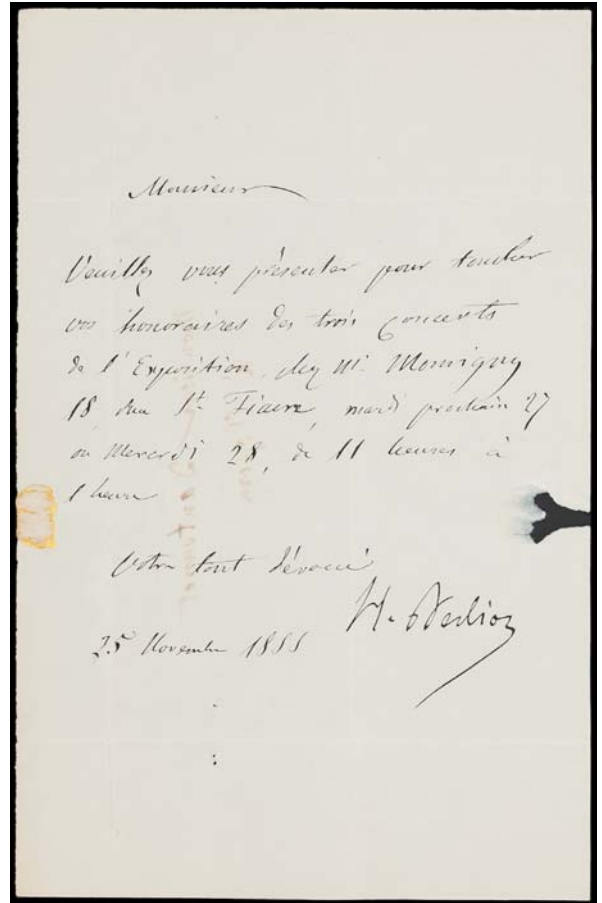 Monsieur
Veuillez vous présenter pour toucher
vos honoraires des trois concerts
de l'Exposition, chez Mr Momigny
18 rue St. Fiacre, mardi prochain 27
ou Mercredi 28, de 11 heures à
1 heure
Votre tout dévoué
H. Berlioz
25 Novembre 1855